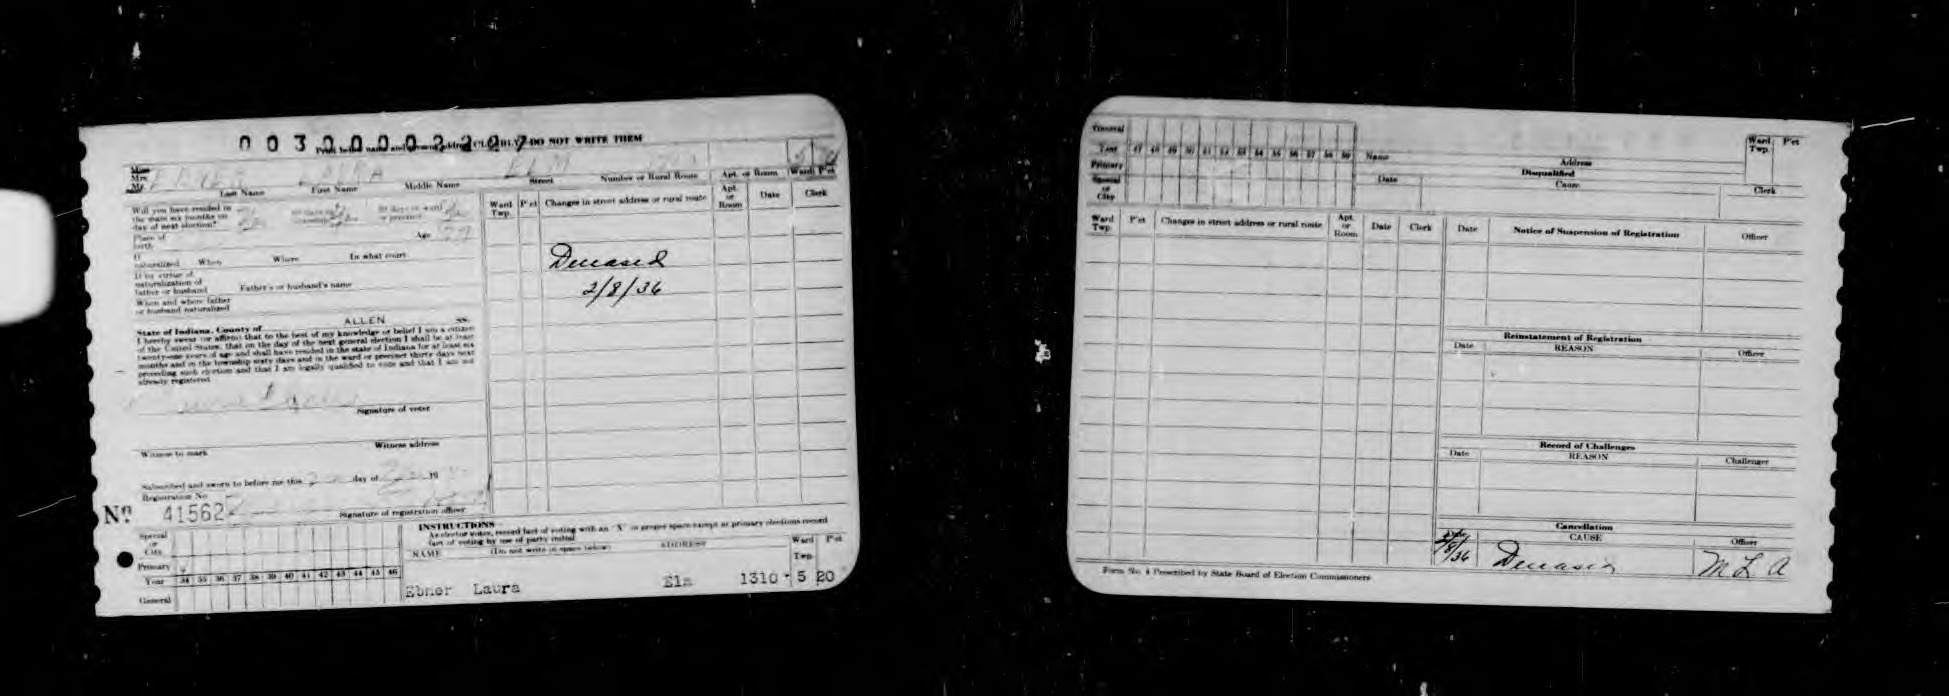 0 0 3 0 0 0 0 2 2 0 7
Print both name and present address CLEARLY—DO NOT WRITE THEM
Miss
Mrs.
Mr. EBNER LAURA ELM 5 20
Last Name First Name Middle Name Street Number or Rural Route Apt. or Room Ward P'ct
Will you have resided in
the state six months on
day of next election?
Place of
birth
Age
If
naturalized When Where In what court
If by virtue of
naturalization of
father or husband Father's or husband's name
When and where father
or husband naturalized
State of Indiana, County of ALLEN SS.
I hereby swear (or affirm) that to the best of my knowledge or belief I am a citizen
of the United States, that on the day of the next general election I shall be at least
twenty-one years of age and shall have resided in the state of Indiana for at least six
months and in the township sixty days and in the ward or precinct thirty days next
preceding such election and that I am legally qualified to vote and that I am not
already registered
Signature of voter
Witness address
Witness to mark
Subscribed and sworn to before me this day of 19
Registration No
No 41562
Signature of registration officer
Ward Twp. P'ct Changes in street address or rural route Apt. or Room Date Clerk
Deceased
2/8/36
Special
or
City
Primary
Year 34 35 36 37 38 39 40 41 42 43 44 45 46
General
INSTRUCTIONS
As elector votes, record fact of voting with an "X" in proper space except at primary elections record
fact of voting by use of party initial
NAME (Do not write in space below) ADDRESS Ward Twp. P'ct
Ebner Laura Elm 1310 5 20
General
Year 47 48 49 50 51 52 53 54 55 56 57 58 59
Primary
Special
or
City
Name Address Ward Twp. P'ct
Disqualified
Date Cause Clerk
Ward Twp. P'ct Changes in street address or rural route Apt. or Room Date Clerk
Date Notice of Suspension of Registration Officer
Reinstatement of Registration
Date REASON Officer
Record of Challenges
Date REASON Challenger
Cancellation
Date CAUSE Officer
2/8/36 Deceased M L A
Form No. 4 Prescribed by State Board of Election Commissioners